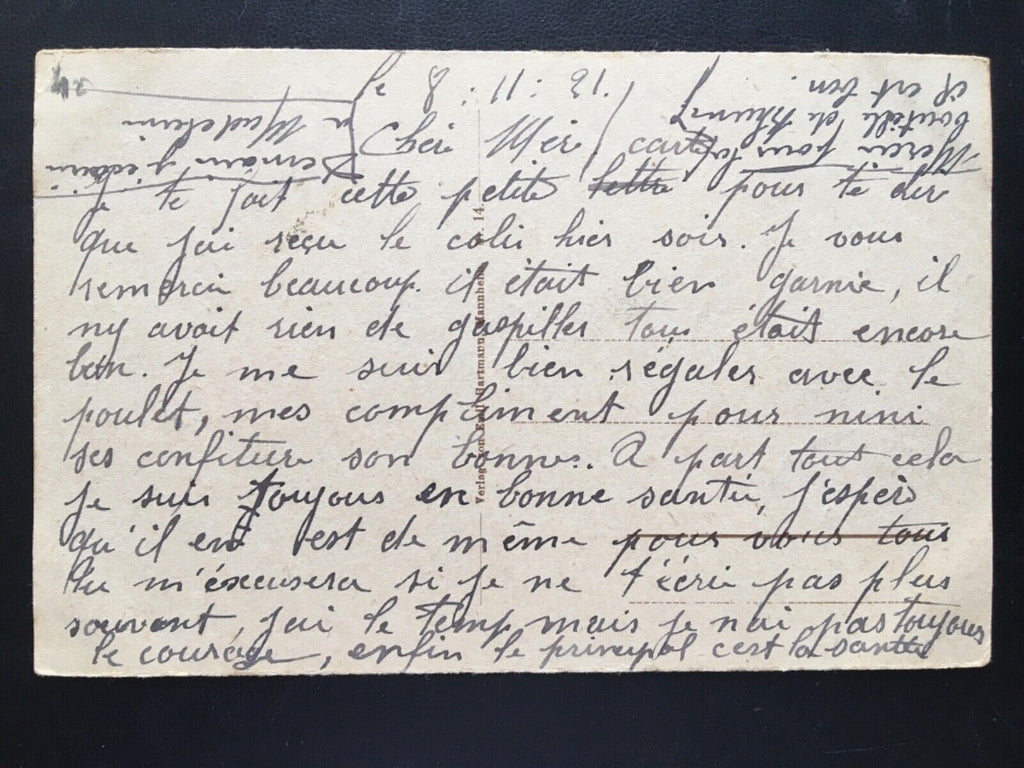 le 8.11.21.
Cheri Mèri
carte
Je te fait cette petite lettre pour te dir
que jai reçu le colis hier soir. Je vous
remerci beaucoup. il était bien garnie, il
ny avait rien de gaspiller tous était encore
bon. Je me suis bien régaler avec le
poulet, mes compliment pour nini
ses confiture son bonnes. A part tout cela
je suis toujous en bonne santée, j'espèr
qu'il en est de même pour vous tous
tu m'éxcusera si je ne t'écri pas plus
souvent, jai le temp mais je nai pas toujous
le courage, enfin le principal cest la santée
Merci pour la
bouteille de Rhum
il est bon.
Demain j'écrir
a Madelein
Verlag von Emil Hartmann, Mannheim 14.